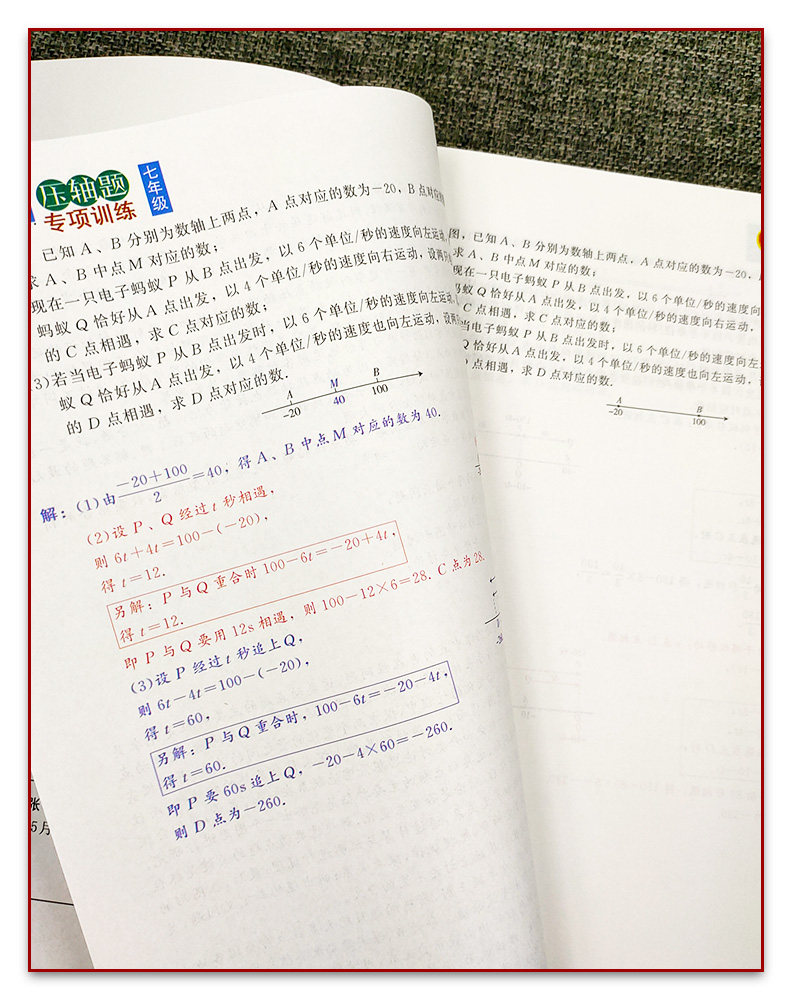 压轴题
专项训练
七年级
已知 A、B 分别为数轴上两点，A 点对应的数为－20，B 点对应的
求 A、B 中点 M 对应的数；
现在一只电子蚂蚁 P 从 B 点出发，以 6 个单位/秒的速度向左运动，
蚂蚁 Q 恰好从 A 点出发，以 4 个单位/秒的速度向右运动，设两只
的 C 点相遇，求 C 点对应的数；
3)若当电子蚂蚁 P 从 B 点出发时，以 6 个单位/秒的速度向左运
蚁 Q 恰好从 A 点出发，以 4 个单位/秒的速度也向左运动，设两
的 D 点相遇，求 D 点对应的数.
A M B
－20 40 100
解：(1)由(－20＋100)/2＝40，得 A、B 中点 M 对应的数为 40.
(2)设 P、Q 经过 t 秒相遇，
则 6t＋4t＝100－(－20)，
得 t＝12.
另解：P 与 Q 重合时 100－6t＝－20＋4t，
得 t＝12.
即 P 与 Q 要用 12s 相遇，则 100－12×6＝28. C 点为 28.
(3)设 P 经过 t 秒追上 Q，
则 6t－4t＝100－(－20)，
得 t＝60，
另解：P 与 Q 重合时，100－6t＝－20－4t，
得 t＝60.
即 P 要 60s 追上 Q，－20－4×60＝－260.
则 D 点为－260.
张
5月
图，已知 A、B 分别为数轴上两点，A 点对应的数为－20，
求 A、B 中点 M 对应的数；
现在一只电子蚂蚁 P 从 B 点出发，以 6 个单位/秒的速度向
蚂蚁 Q 恰好从 A 点出发，以 4 个单位/秒的速度向右运动，
C 点相遇，求 C 点对应的数；
当电子蚂蚁 P 从 B 点出发时，以 6 个单位/秒的速度向左
Q 恰好从 A 点出发，以 4 个单位/秒的速度也向左运动，
点相遇，求 D 点对应的数.
A B
－20 100